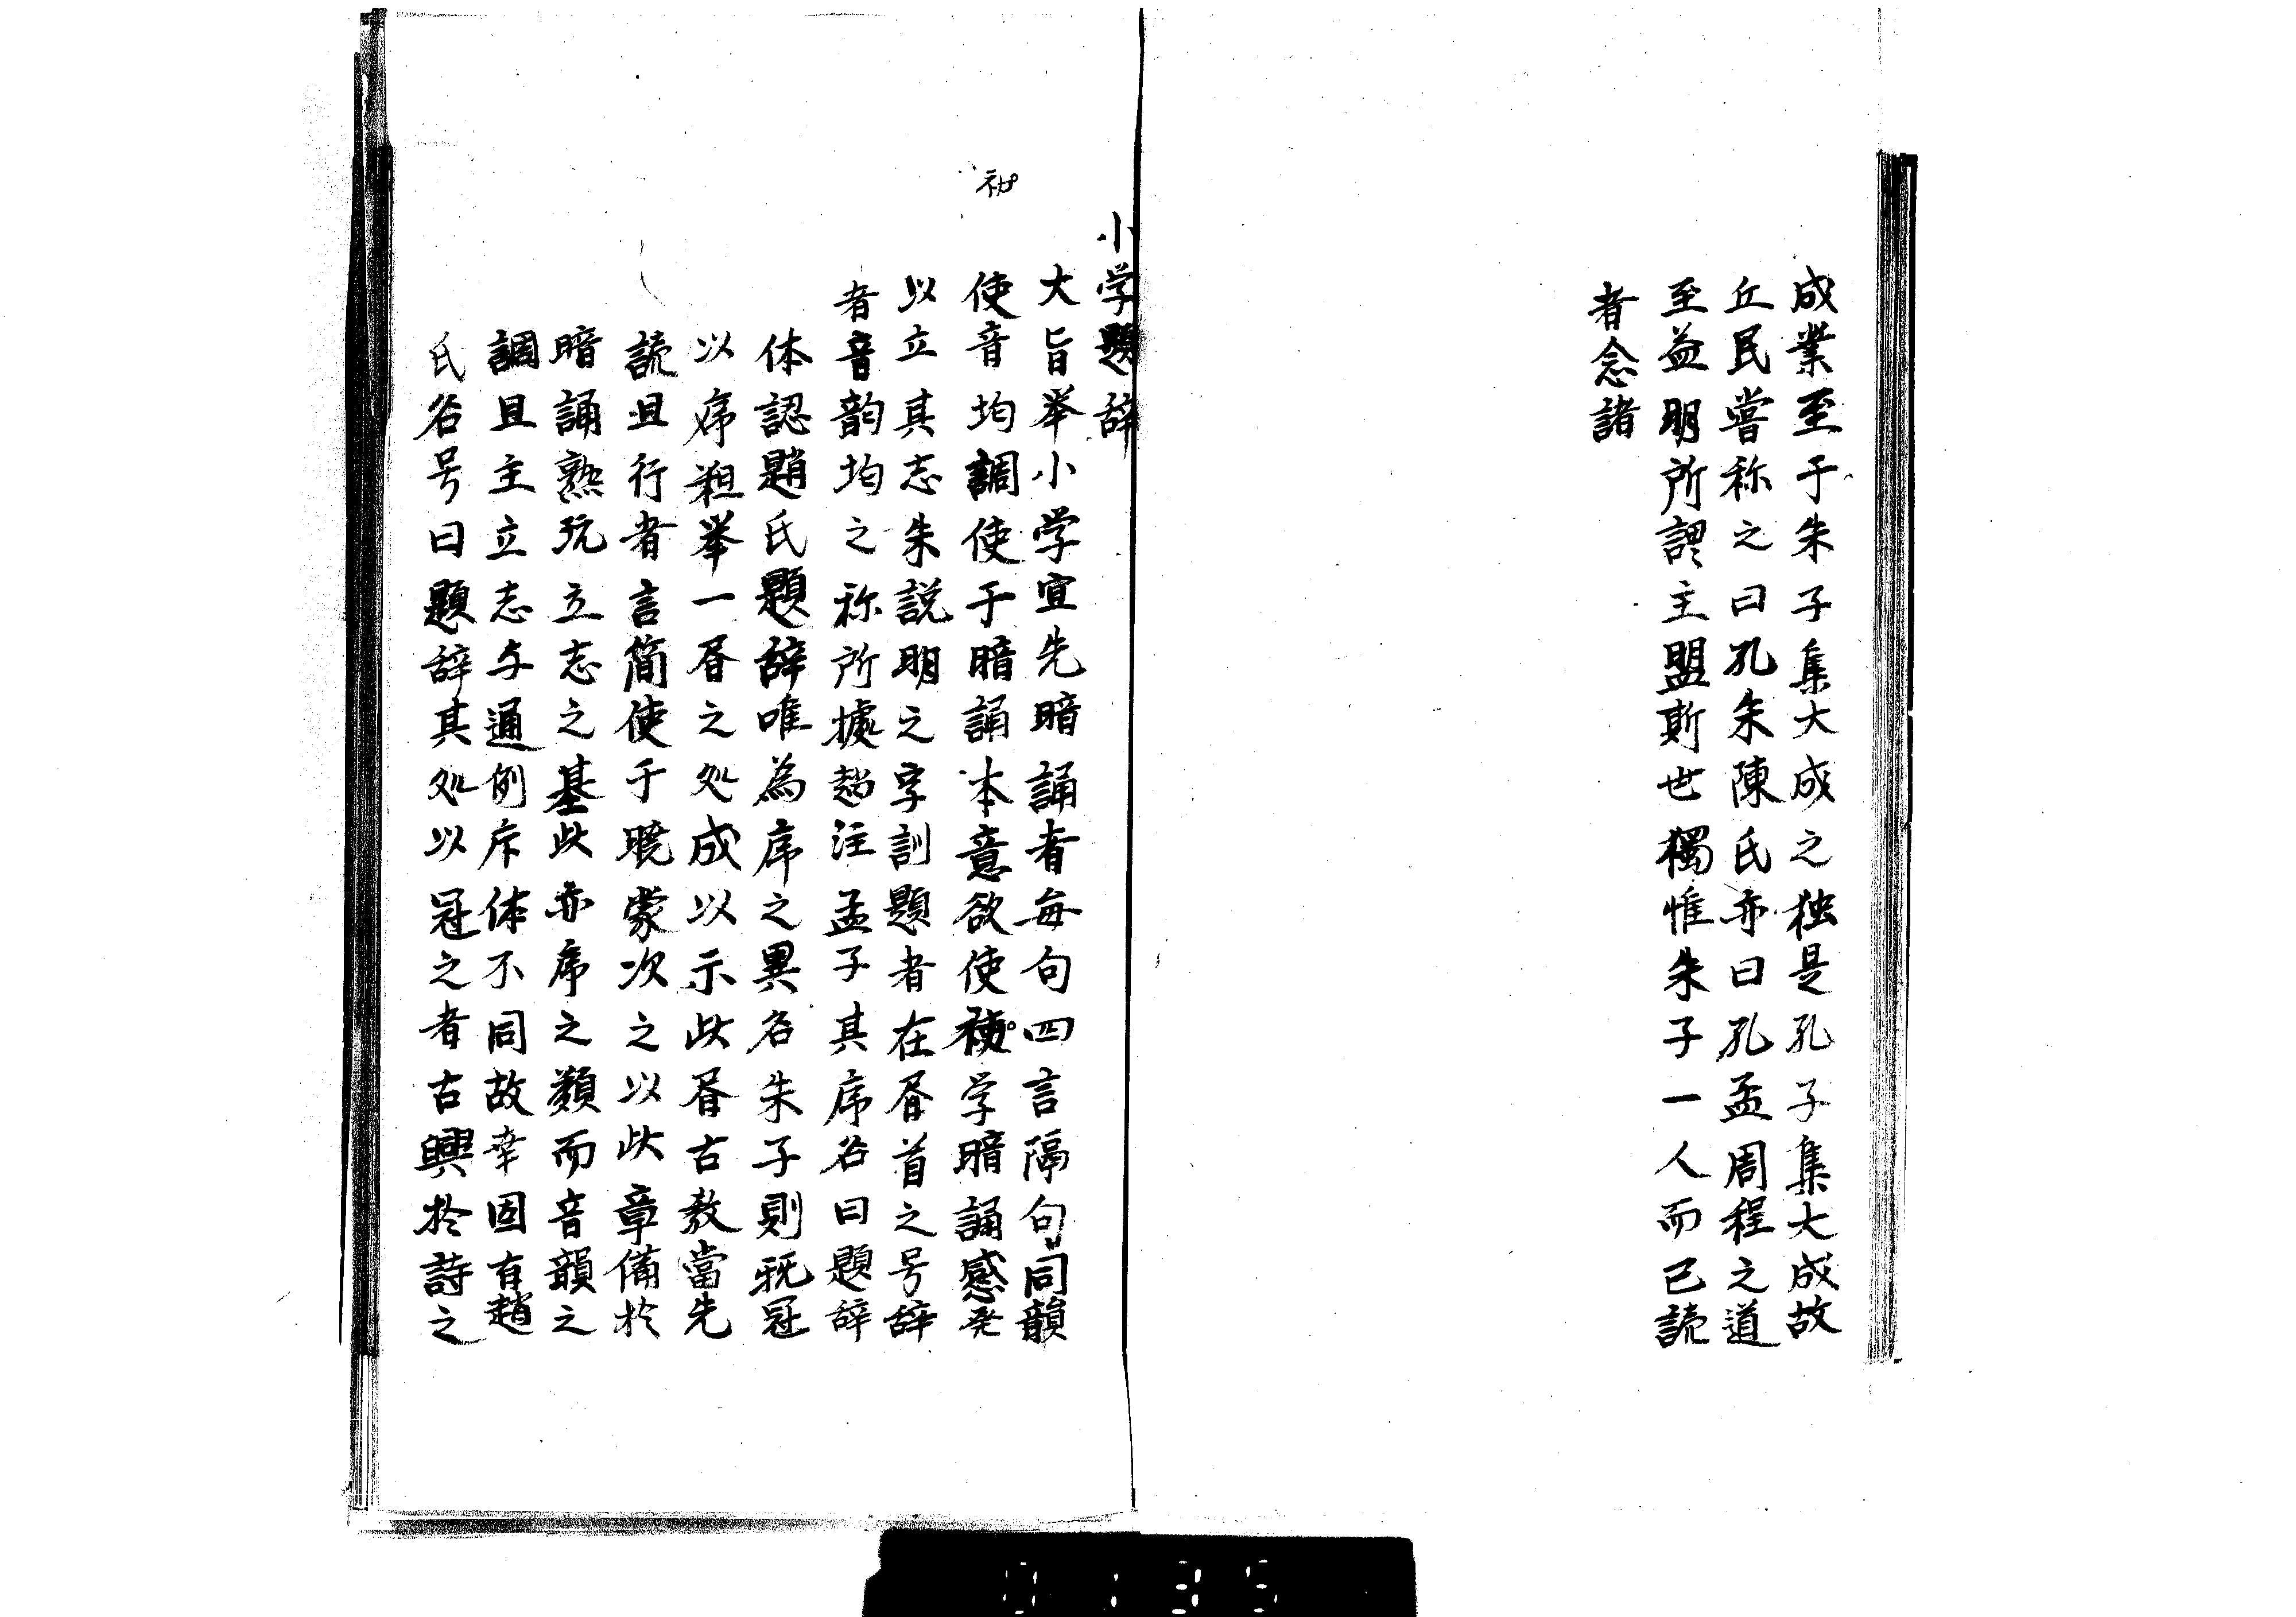 成業至于朱子集大成之独是孔子集大成故
丘民嘗称之曰孔朱陳氏亦曰孔孟周程之道
至益明所謂主盟斯世獨惟朱子一人而已読
者念諸
小学題辞
大旨举小学宜先暗誦者毎句四言隔句同韻
使音均調使于暗誦本意欲使初学暗誦感発
以立其志朱説明之字訓題者在昏首之号辞
者音韵均之称所據趙注孟子其序名曰題辞
体認題氏題辞唯為序之異名朱子則既冠
以序粗举一昏之処成以示此昏古教當先
読且行者言简使于暁蒙次之以此章備於
暗誦熟玩立志之基此亦序之類而音韻之
調且主立志与通例序体不同故幸因有趙
氏名号曰題辞其処以冠之者古興於詩之
初